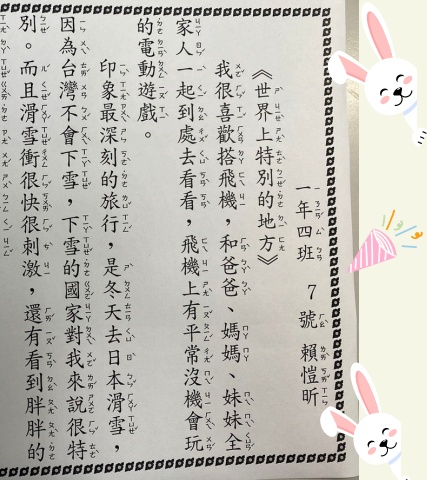 一年四班 7號 賴愷昕
《世界上特別的地方》
我很喜歡搭飛機，和爸爸、媽媽、妹妹全
家人一起到處去看看，飛機上有平常沒機會玩
的電動遊戲。
印象最深刻的旅行，是冬天去日本滑雪，
因為台灣不會下雪，下雪的國家對我來說很特
別。而且滑雪衝很快很刺激，還有看到胖胖的